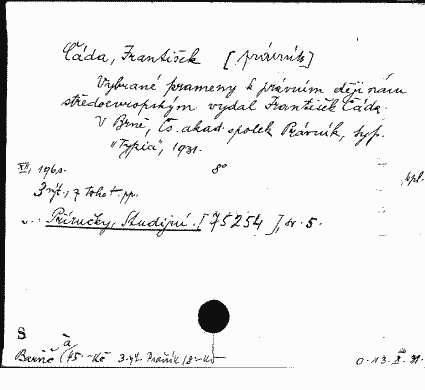 Čáda, František [právník]
Vybrané prameny k právním dějinám
středoevropským vydal František Čáda.
V Brně, Čs. akad. spolek Právník, typ.
"Typia", 1931.
XII, 196 s. 8°
3 výt., z toho 1 pp.
Příručky, Studijní. [75254], sv. 5.
S
Brně à (45.- Kč 3. výt. 18.- Kč
0.13.X.31.